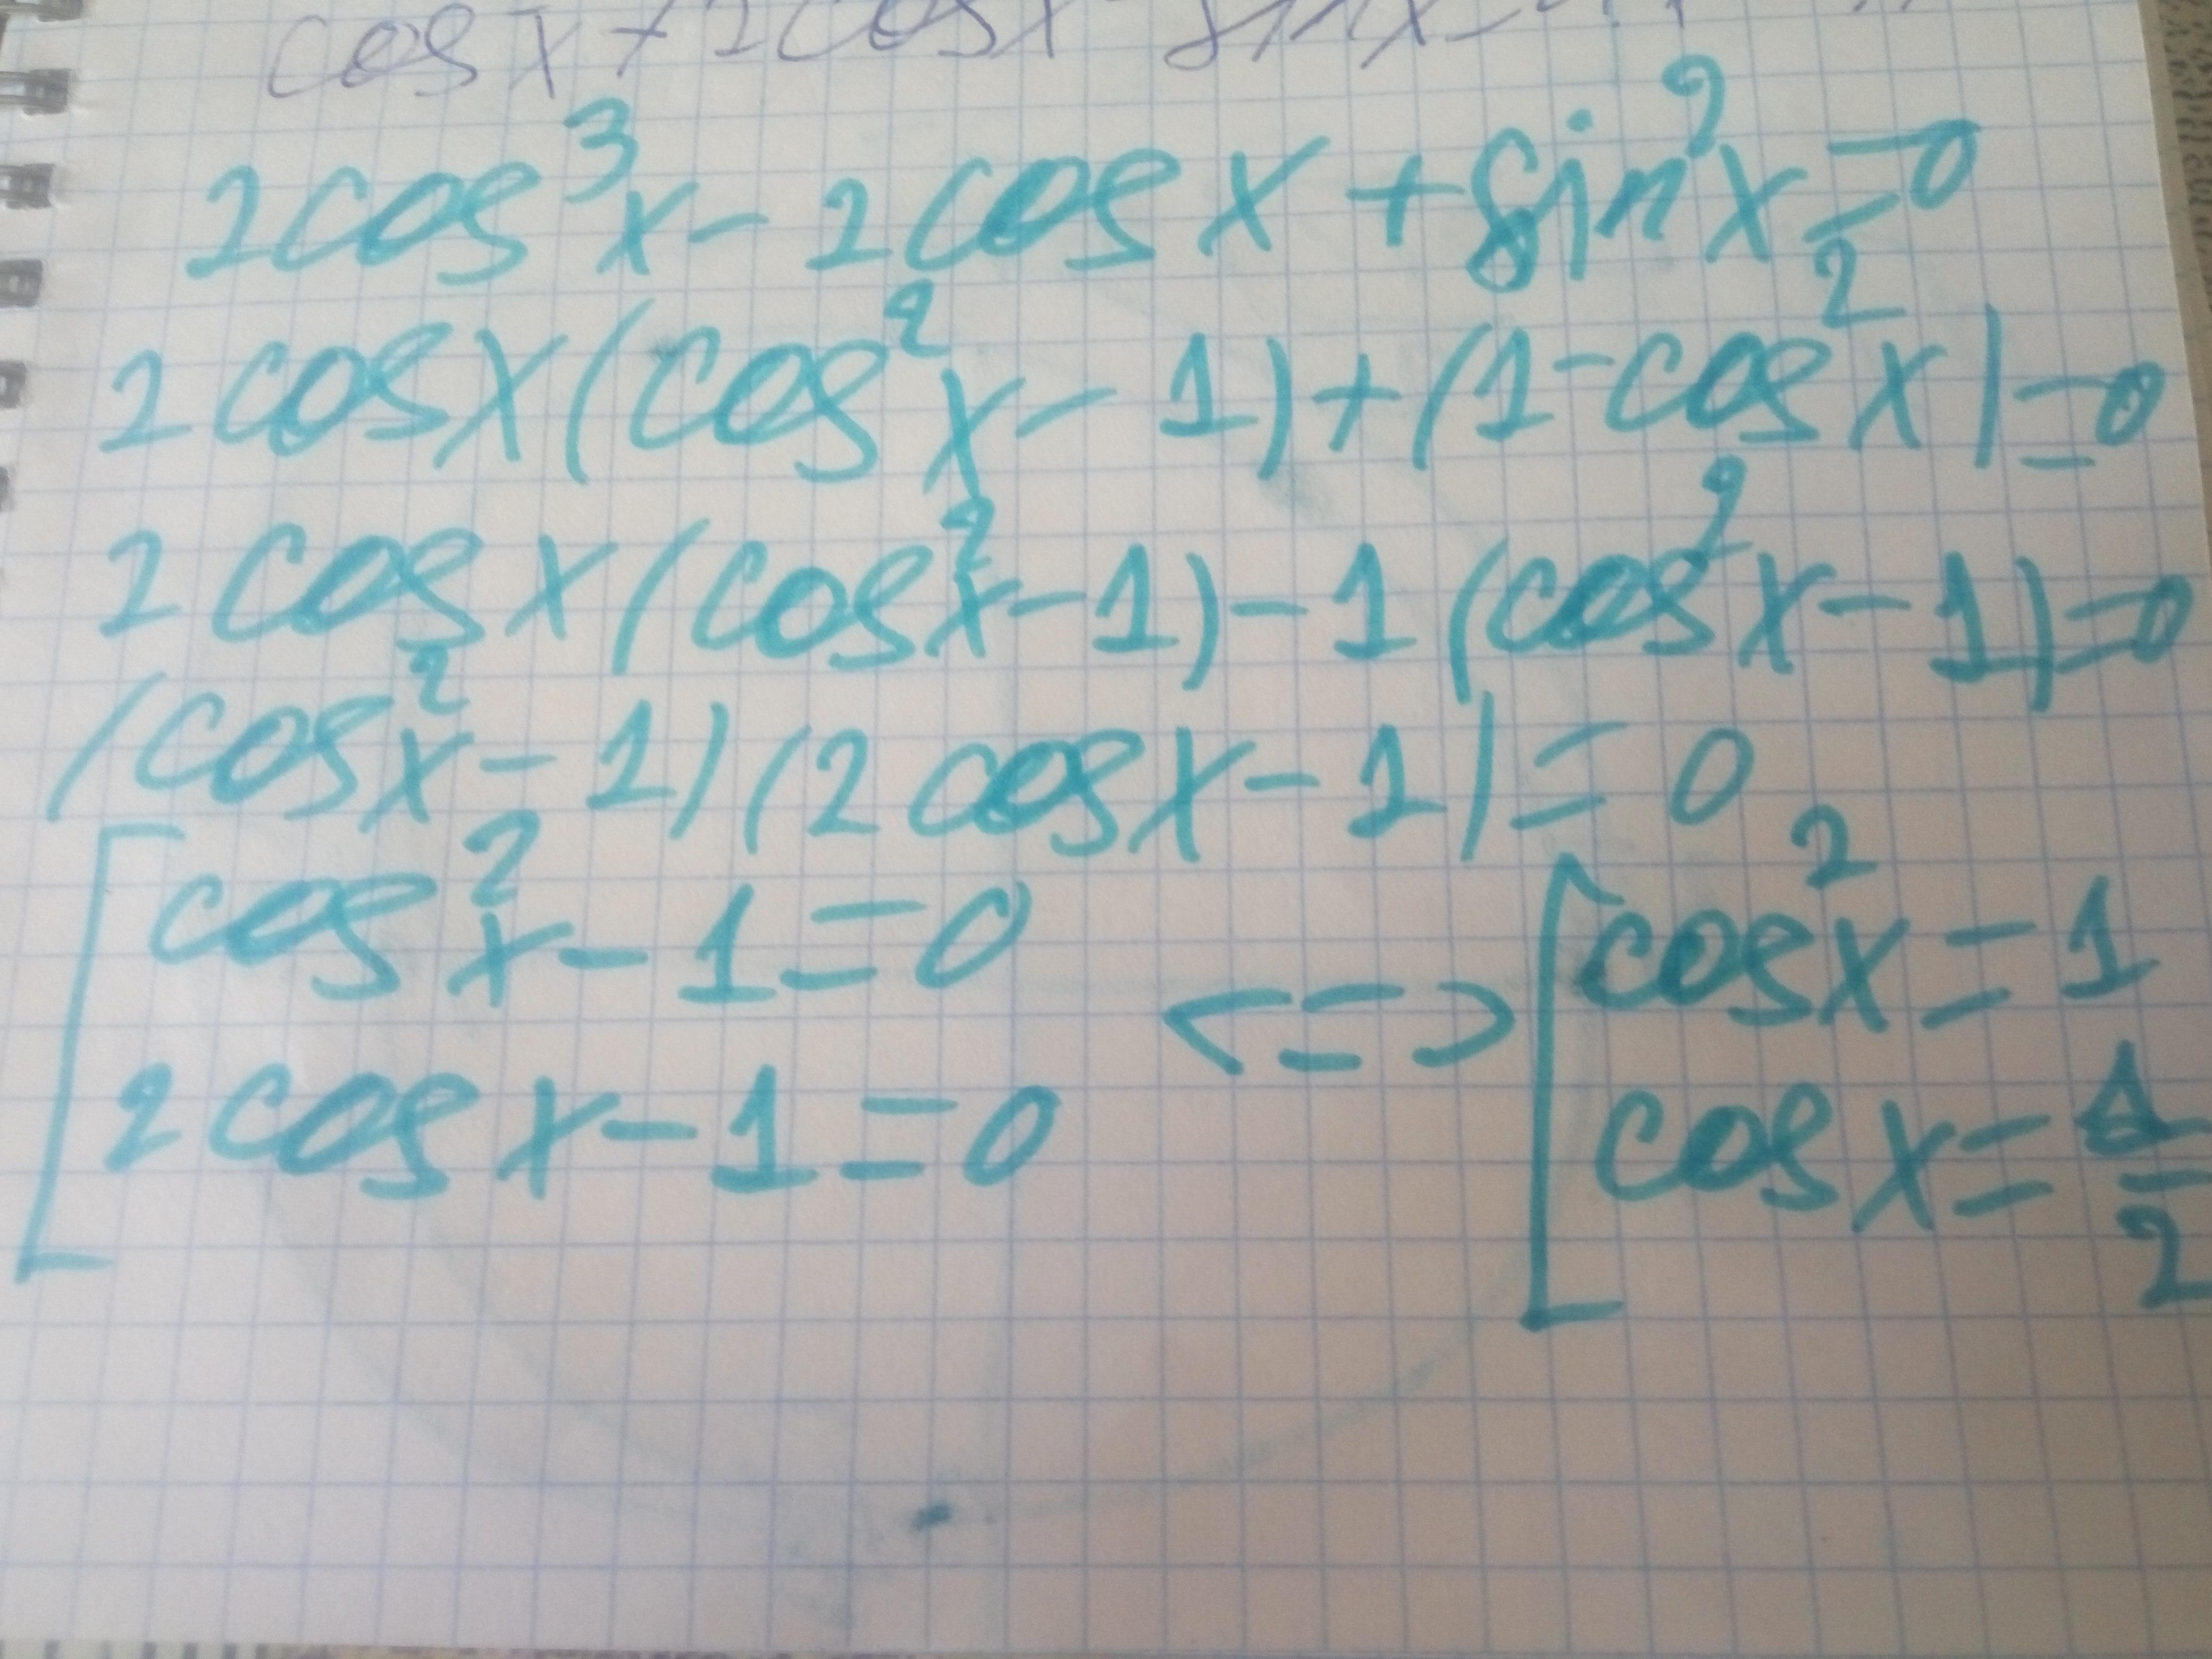 cos x + 2cosx sinx
2cos³x - 2cos x + sin²x = 0
2cosx(cos²x - 1) + (1 - cos²x) = 0
2cosx(cos²x - 1) - 1(cos²x - 1) = 0
(cos²x - 1)(2cosx - 1) = 0
[cos²x - 1 = 0 <=> [cos²x = 1
2cosx - 1 = 0 cosx = 1/2